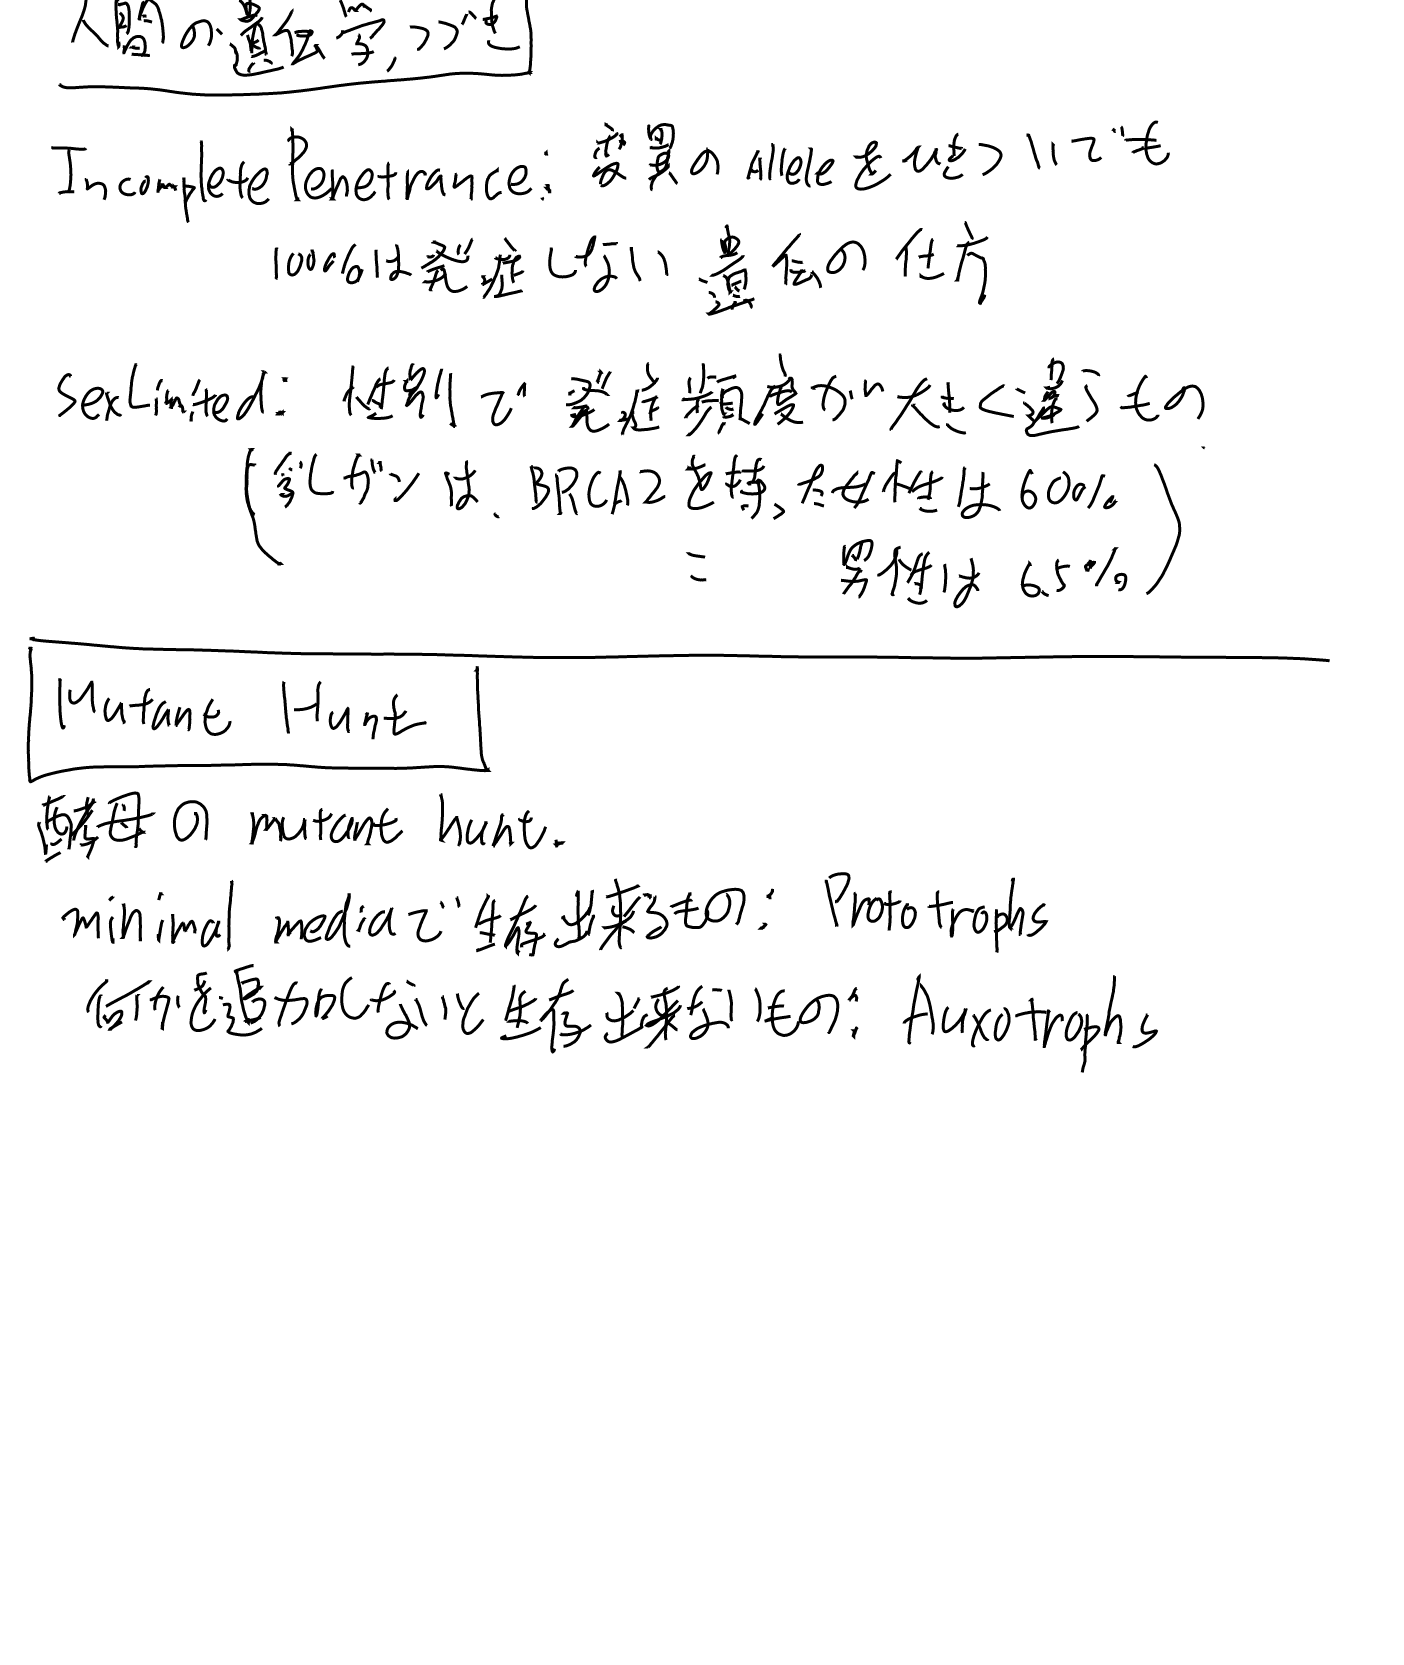 人間の遺伝学,つづき
Incomplete Penetrance: 変異のAlleleをひきついでも
100%は発症しない遺伝の仕方
Sex Limited: 性別で発症頻度が大きく違うもの
(乳ガンは、BRCA2を持った女性は60%
〃 男性は6.5%)
Mutant Hunt
酵母の mutant hunt.
minimal mediaで生存出来るもの: Prototrophs
何かを追加しないと生存出来ないもの: Auxotrophs